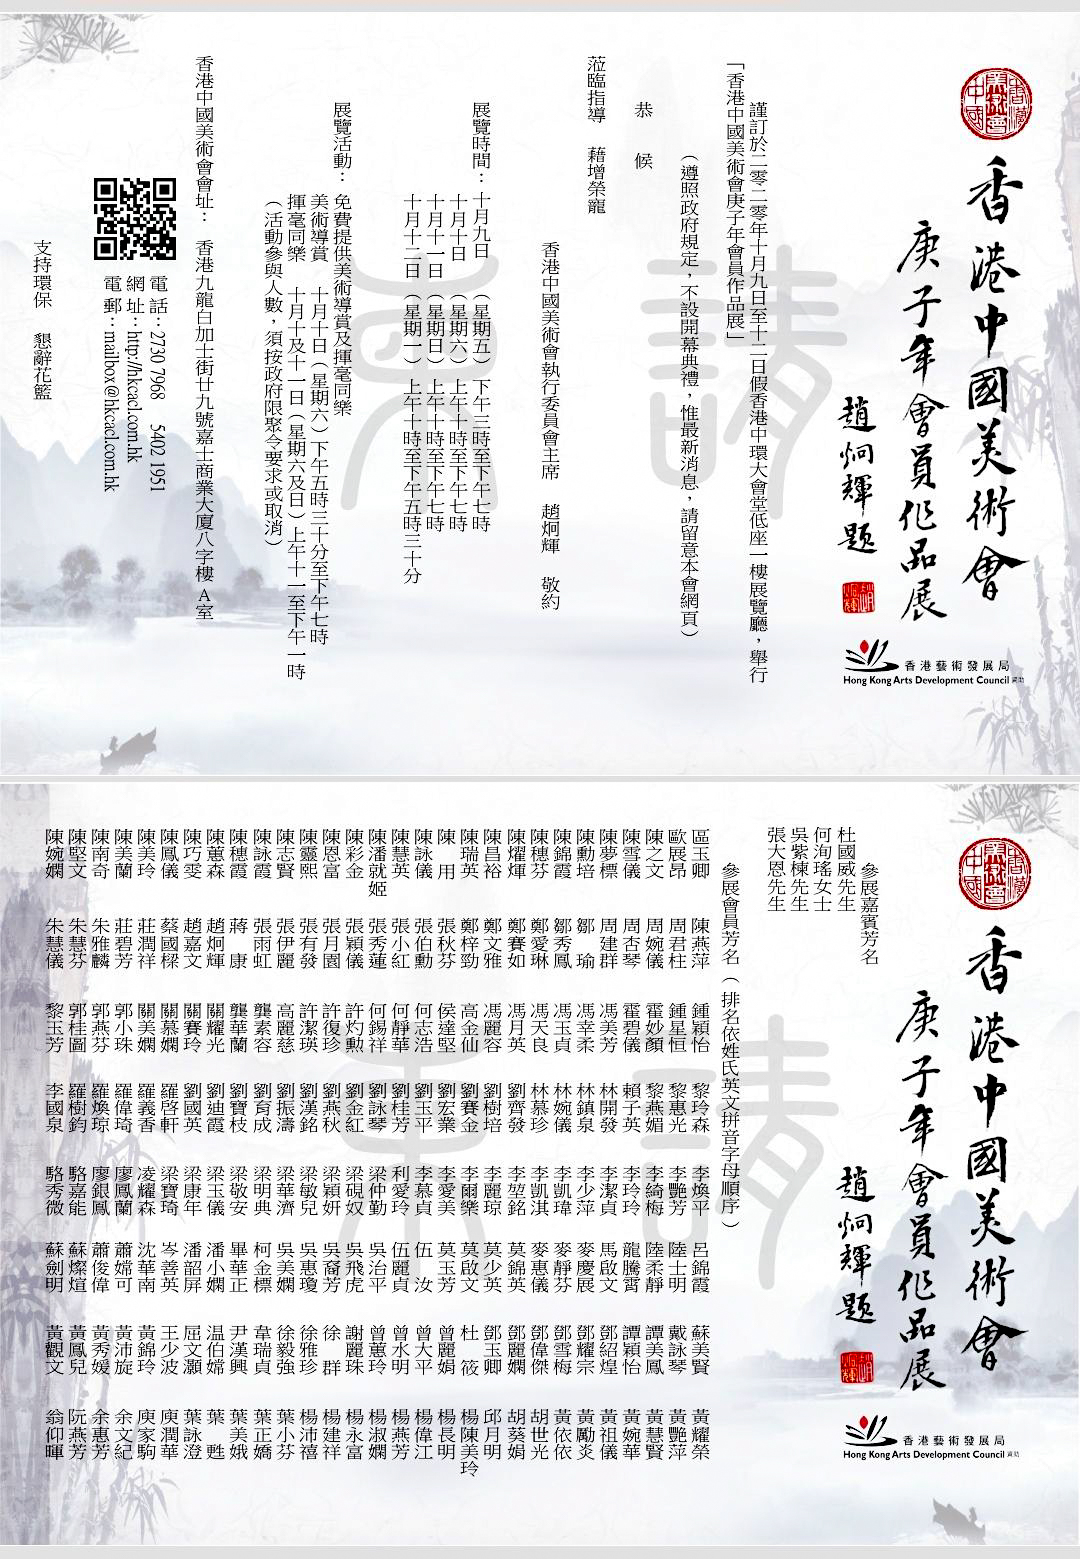 香港中國美術會
香港中國美術會
庚子年會員作品展
趙炯輝題
趙炯輝
香港藝術發展局
Hong Kong Arts Development Council 資助
請柬
謹訂於二零二零年十月九日至十二日假香港中環大會堂低座一樓展覽廳，舉行
「香港中國美術會庚子年會員作品展」
（遵照政府規定，不設開幕典禮，惟最新消息，請留意本會網頁）
恭 候
蒞臨指導 藉增榮寵
香港中國美術會執行委員會主席 趙炯輝 敬約
展覽時間：十月九日 （星期五）下午三時至下午七時
十月十日 （星期六）上午十時至下午七時
十月十一日（星期日）上午十時至下午七時
十月十二日（星期一）上午十時至下午五時三十分
展覽活動：免費提供美術導賞及揮毫同樂
美術導賞 十月十日（星期六）下午五時三十分至下午七時
揮毫同樂 十月十及十一日（星期六及日）上午十一至下午一時
（活動參與人數，須按政府限聚令要求或取消）
香港中國美術會會址： 香港九龍白加士街廿九號嘉士商業大廈八字樓 A室
電話：2730 7968 5402 1951
網址：http://hkcacl.com.hk
電郵：mailbox@hkcacl.com.hk
支持環保 懇辭花籃
香港中國美術會
香港中國美術會
庚子年會員作品展
趙炯輝題
趙炯輝
香港藝術發展局
Hong Kong Arts Development Council 資助
請柬
參展嘉賓芳名
杜國威先生
何洵瑤女士
吳紫棟先生
張大恩先生
參展會員芳名（排名依姓氏英文拼音字母順序）
區玉卿 陳燕萍 鍾穎怡 黎玲森 李煥平 呂錦霞 蘇美賢 黃耀榮
歐展昂 周君柱 鍾星恒 黎惠光 李艷芳 陸士明 戴詠琴 黃艷萍
陳之文 周婉儀 霍妙顏 黎燕媚 李綺梅 陸柔靜 譚美鳳 黃慧賢
陳雪儀 周杏琴 霍碧儀 賴子英 李玲玲 龍騰霄 譚穎怡 黃婉華
陳夢標 周建群 馮美芳 林開發 李潔貞 馬啟文 鄧紹煌 黃祖儀
陳勳培 鄒 瑜 馮幸柔 林鎮泉 李少萍 麥慶展 鄧耀宗 黃勵炎
陳錦霞 鄒秀鳳 馮玉貞 林婉儀 李凱瑋 麥靜芬 鄧雪梅 黃依依
陳穗芬 鄭愛琳 馮天良 林慕珍 李凱淇 麥惠儀 鄧偉傑 胡世光
陳燿煇 鄭賽如 馮月英 劉齊發 李堃銘 莫錦英 鄧麗嫻 胡葵娟
陳昌裕 鄭文雅 馮麗容 劉樹培 李麗琼 莫少英 鄧玉卿 邱月明
陳瑞英 鄭梓勁 高金仙 劉賽金 李爾樂 莫啟文 杜 筱 楊陳美玲
陳 用 張秋芬 侯達堅 劉宏業 李愛美 莫玉芳 曾麗娟 楊長明
陳詠儀 張伯勳 何志浩 劉玉平 李慕貞 伍 汝 曾大平 楊偉江
陳慧英 張小紅 何靜華 劉桂芳 利愛玲 伍麗貞 曾水明 楊燕芳
陳潘就姬 張秀蓮 何錫祥 劉詠琴 梁仲勤 吳治平 曾蕙玲 楊淑嫻
陳彩金 張穎儀 許灼勲 劉金紅 梁硯奴 吳飛虎 謝麗珠 楊永富
陳恩富 張月園 許復珍 劉燕秋 梁穎妍 吳裔芳 徐 群 楊建祥
陳靈熙 張有發 許潔瑛 劉漢銘 梁敏兒 吳惠瓊 徐雅珍 楊沛禧
陳志賢 張伊麗 高麗慈 劉振濤 梁華濟 吳美嫻 徐毅強 葉小芬
陳詠霞 張雨虹 龔素容 劉育成 梁明典 柯金標 韋瑞貞 葉正嬌
陳穗霞 蔣 康 龔華蘭 劉寶枝 梁敬安 畢華正 尹漢興 葉美娥
陳蕙森 趙炯輝 關耀光 劉迪霞 梁玉儀 潘小嫻 温伯嫦 葉 甦
陳巧雯 趙嘉文 關賽玲 劉國英 梁康年 潘韶屏 屈文灝 葉詠澄
陳鳳儀 蔡國樑 關慕嫻 羅啓軒 梁寶琦 岑善英 王少波 庾潤華
陳美玲 莊潤祥 關美嫻 羅義香 凌耀森 沈華南 黃錦玲 庾家駒
陳美蘭 莊碧芳 郭小珠 羅偉琦 廖鳳蘭 蕭嫦可 黃沛旋 余文紀
陳南奇 朱雅麟 郭燕芬 羅煥瓊 廖銀鳳 蕭俊偉 黃秀媛 余惠芳
陳堅文 朱慧芬 郭桂圖 羅樹鈞 駱嘉能 蘇燦煊 黃鳳兒 阮燕芳
陳婉嫻 朱慧儀 黎玉芳 李國泉 駱秀微 蘇劍明 黃觀文 翁仰暉